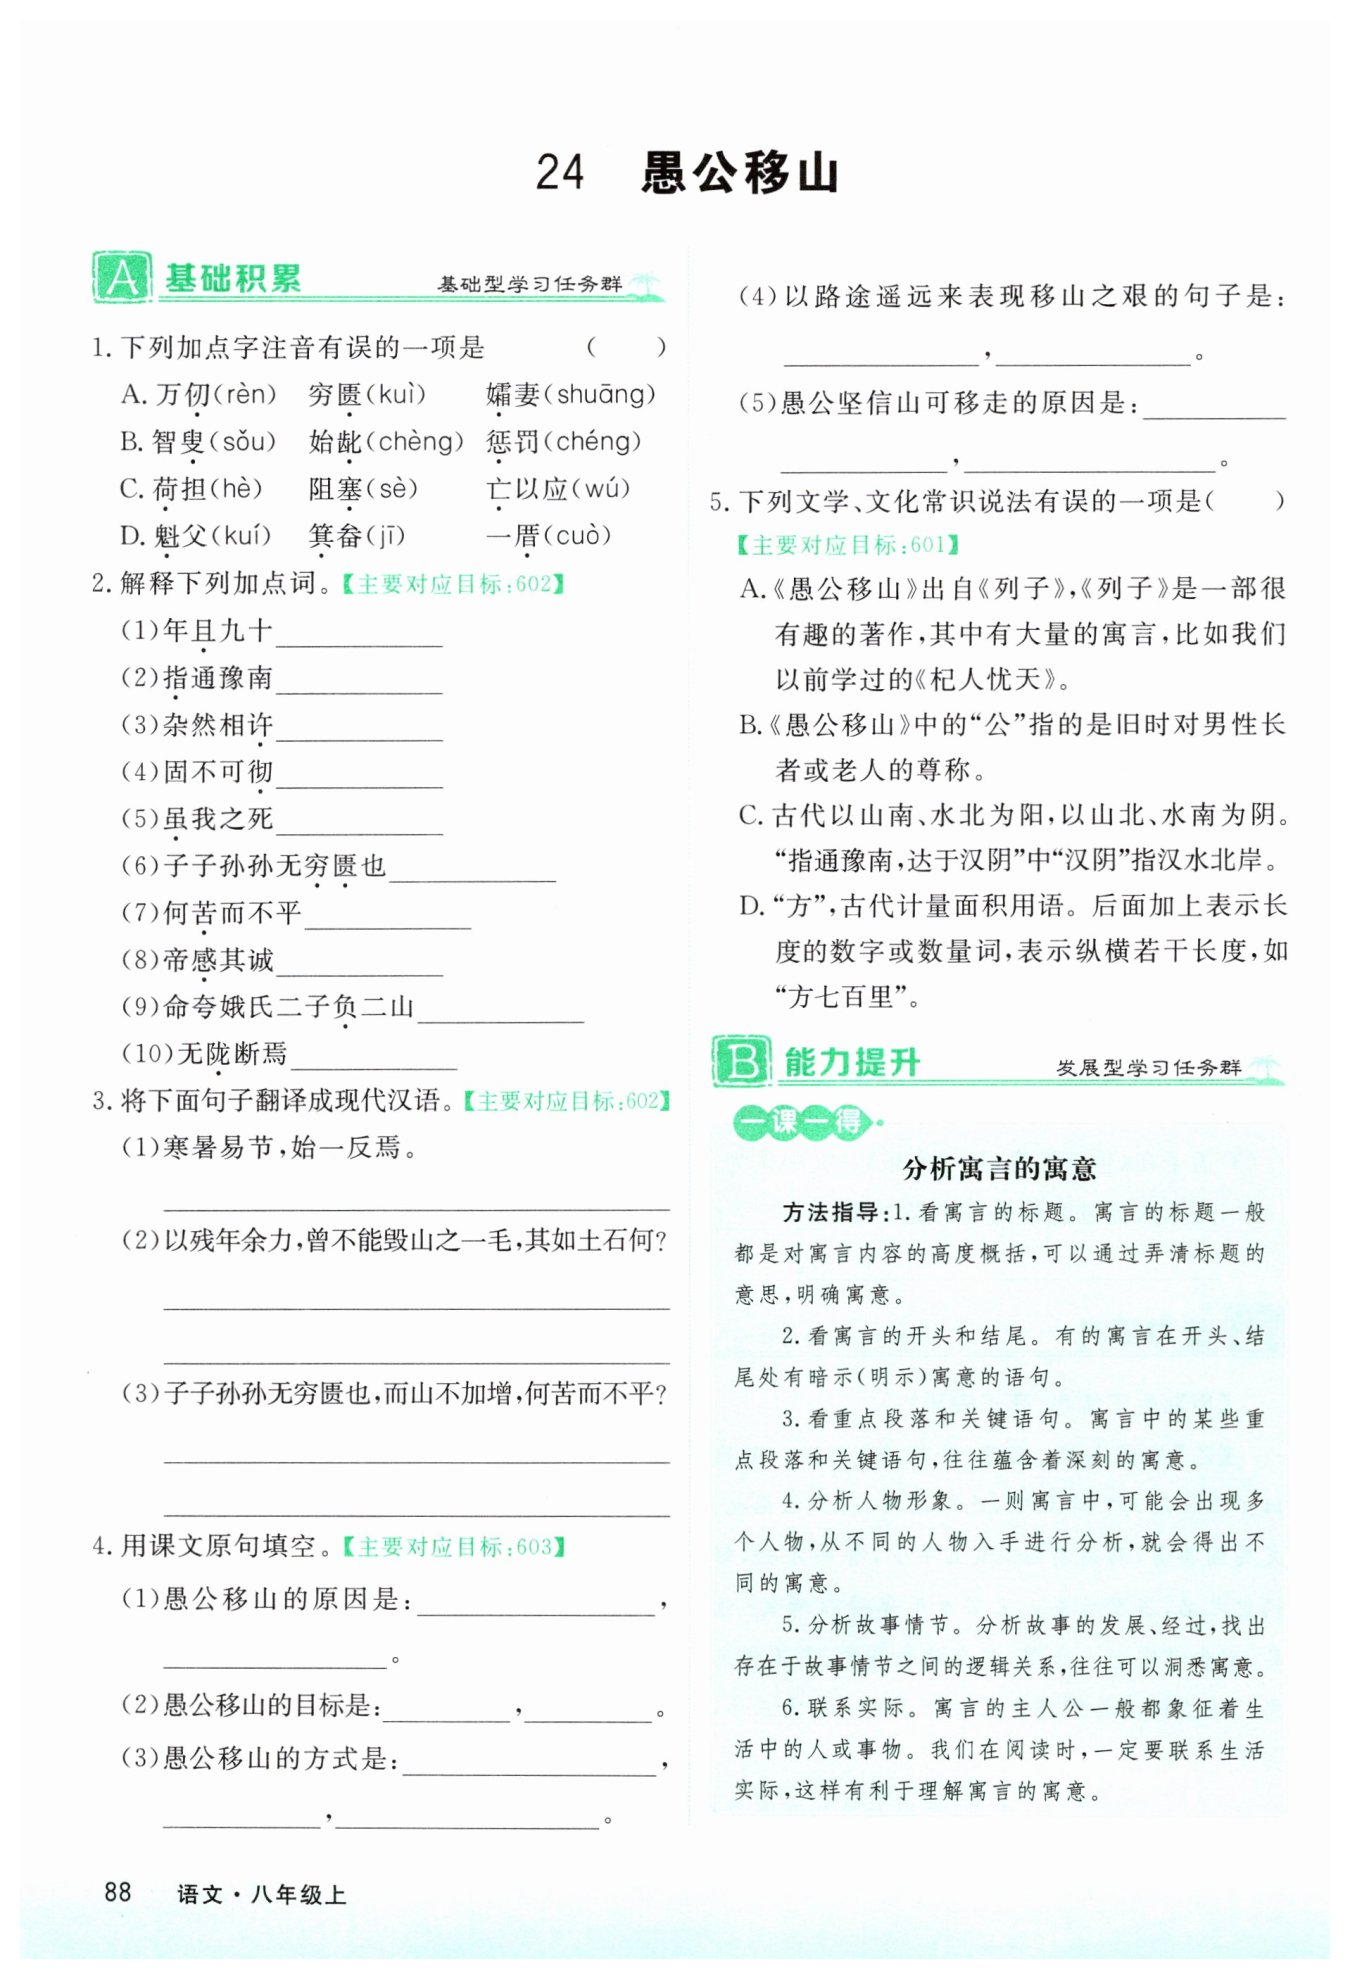 24 愚公移山
A 基础积累 基础型学习任务群
1. 下列加点字注音有误的一项是 ( )
A. 万仞(rèn) 穷匮(kuì) 孀妻(shuāng)
B. 智叟(sǒu) 始龀(chèng) 惩罚(chéng)
C. 荷担(hè) 阻塞(sè) 亡以应(wú)
D. 魁父(kuí) 箕畚(jī) 一厝(cuò)
2. 解释下列加点词。【主要对应目标:602】
(1)年且九十
(2)指通豫南
(3)杂然相许
(4)固不可彻
(5)虽我之死
(6)子子孙孙无穷匮也
(7)何苦而不平
(8)帝感其诚
(9)命夸娥氏二子负二山
(10)无陇断焉
3. 将下面句子翻译成现代汉语。【主要对应目标:602】
(1)寒暑易节,始一反焉。
(2)以残年余力,曾不能毁山之一毛,其如土石何?
(3)子子孙孙无穷匮也,而山不加增,何苦而不平?
4. 用课文原句填空。【主要对应目标:603】
(1)愚公移山的原因是: ,
。
(2)愚公移山的目标是: , 。
(3)愚公移山的方式是: ,
, 。
(4)以路途遥远来表现移山之艰的句子是:
, 。
(5)愚公坚信山可移走的原因是:
, 。
5. 下列文学、文化常识说法有误的一项是( )
【主要对应目标:601】
A.《愚公移山》出自《列子》,《列子》是一部很
有趣的著作,其中有大量的寓言,比如我们
以前学过的《杞人忧天》。
B.《愚公移山》中的“公”指的是旧时对男性长
者或老人的尊称。
C. 古代以山南、水北为阳,以山北、水南为阴。
“指通豫南,达于汉阴”中“汉阴”指汉水北岸。
D. “方”,古代计量面积用语。后面加上表示长
度的数字或数量词,表示纵横若干长度,如
“方七百里”。
B 能力提升 发展型学习任务群
一课一得
分析寓言的寓意
方法指导:1. 看寓言的标题。寓言的标题一般
都是对寓言内容的高度概括,可以通过弄清标题的
意思,明确寓意。
2. 看寓言的开头和结尾。有的寓言在开头、结
尾处有暗示(明示)寓意的语句。
3. 看重点段落和关键语句。寓言中的某些重
点段落和关键语句,往往蕴含着深刻的寓意。
4. 分析人物形象。一则寓言中,可能会出现多
个人物,从不同的人物入手进行分析,就会得出不
同的寓意。
5. 分析故事情节。分析故事的发展、经过,找出
存在于故事情节之间的逻辑关系,往往可以洞悉寓意。
6. 联系实际。寓言的主人公一般都象征着生
活中的人或事物。我们在阅读时,一定要联系生活
实际,这样有利于理解寓言的寓意。
88 语文·八年级上